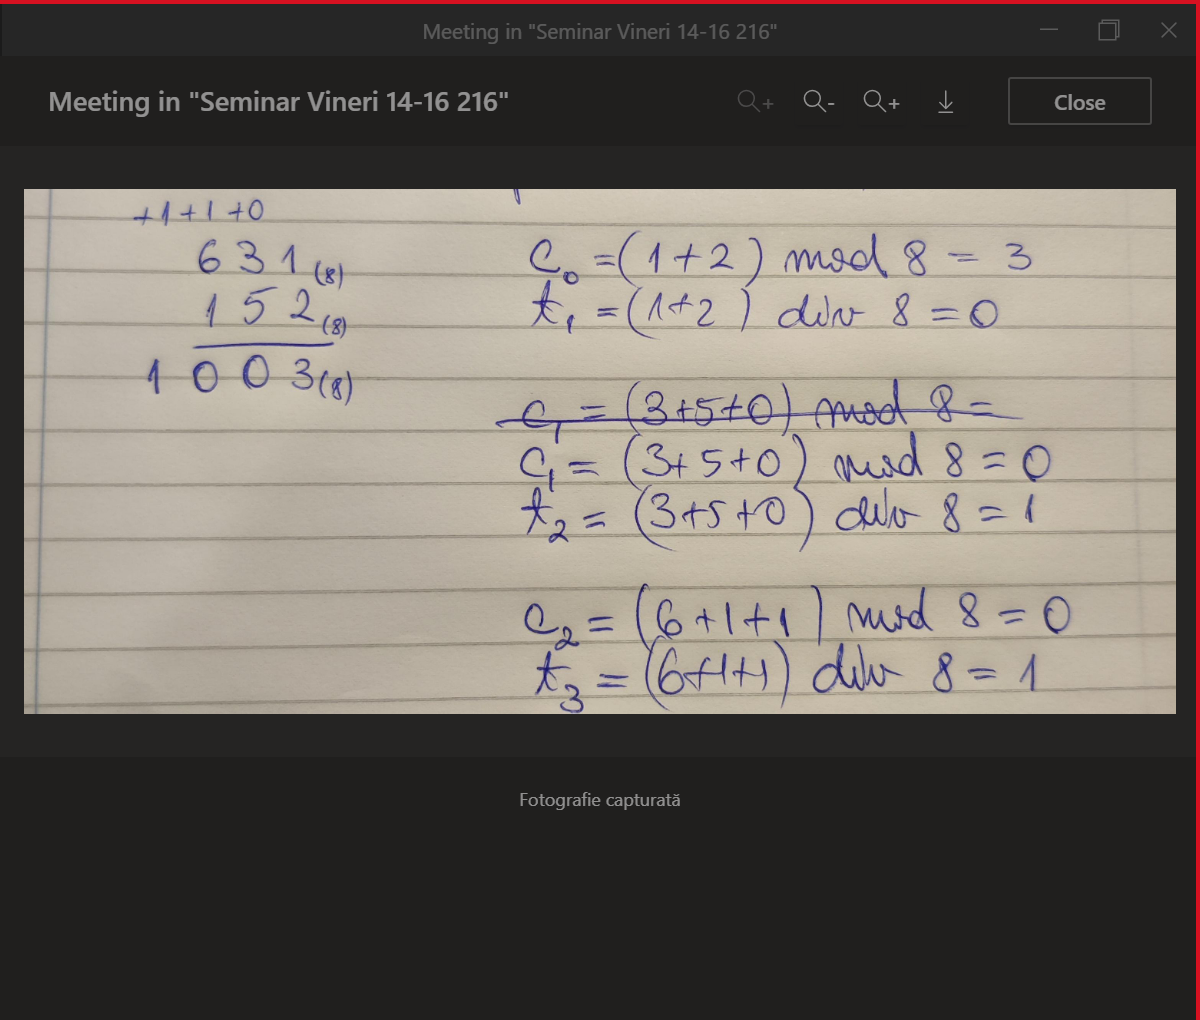 Meeting in "Seminar Vineri 14-16 216"
Meeting in "Seminar Vineri 14-16 216"
Close
+1 +1 +0
6 3 1 (8)
1 5 2 (8)
1 0 0 3 (8)
C₀ = (1+2) mod 8 = 3
t₁ = (1+2) div 8 = 0
C₁ = (3+5+0) mod 8 =
C₁ = (3+5+0) mod 8 = 0
t₂ = (3+5+0) div 8 = 1
C₂ = (6+1+1) mod 8 = 0
t₃ = (6+1+1) div 8 = 1
Fotografie capturată